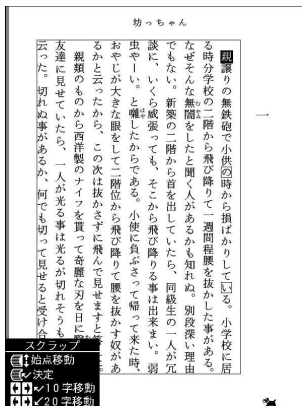 坊っちゃん
一
親譲りの無鉄砲で小供の時から損ばかりしている。小学校に居
る時分学校の二階から飛び降りて一週間程腰を抜かした事がある。
なぜそんな無闇をしたと聞く人があるかも知れぬ。別段深い理由
でもない。新築の二階から首を出していたら、同級生の一人が冗
談に、いくら威張っても、そこから飛び降りる事は出来まい。弱
虫やーい。と囃したからである。小使に負ぶさって帰って来た時、
おやじが大きな眼をして二階位から飛び降りて腰を抜かす奴があ
るかと云ったから、この次は抜かさずに飛んで見せますと
親類のものから西洋製のナイフを貰って奇麗な刃を日に
友達に見せていたら、一人が光る事は光るが切れそう
云った。切れぬ事があるか、何でも切って見せると受け合
スクラップ
始点移動
決定
10字移動
20字移動